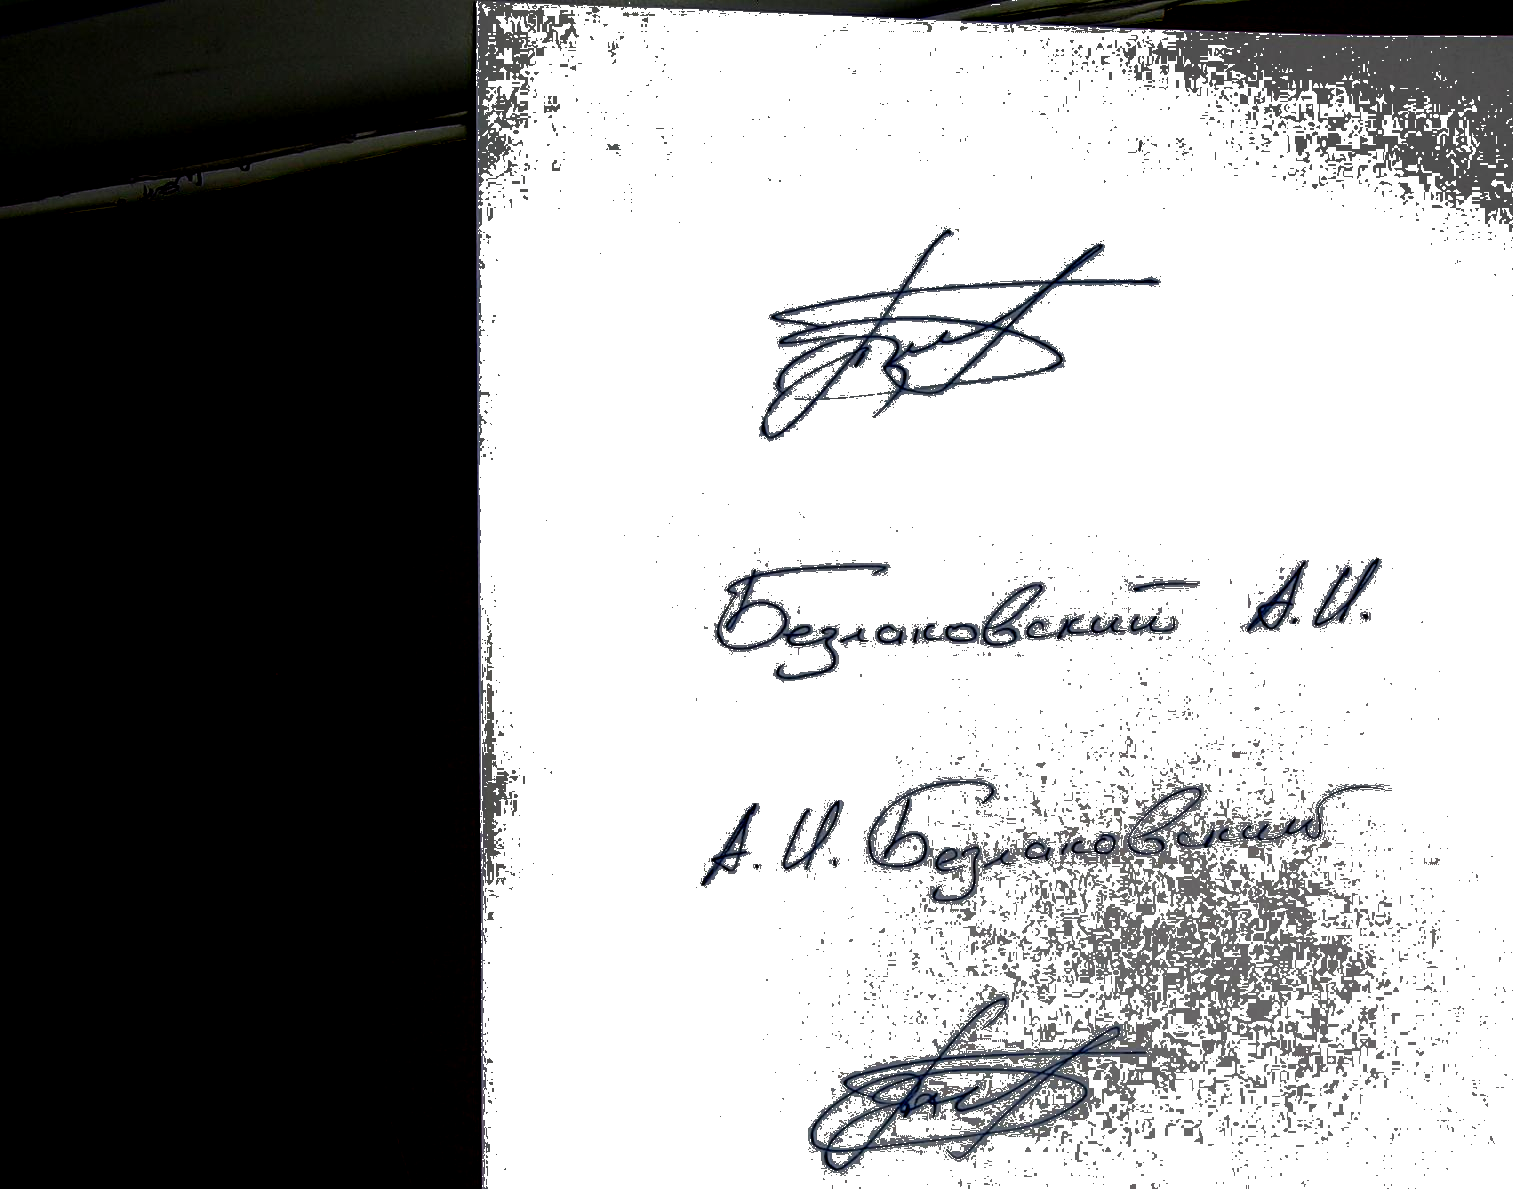 Безлаковский А.И.
А.И. Безлаковский